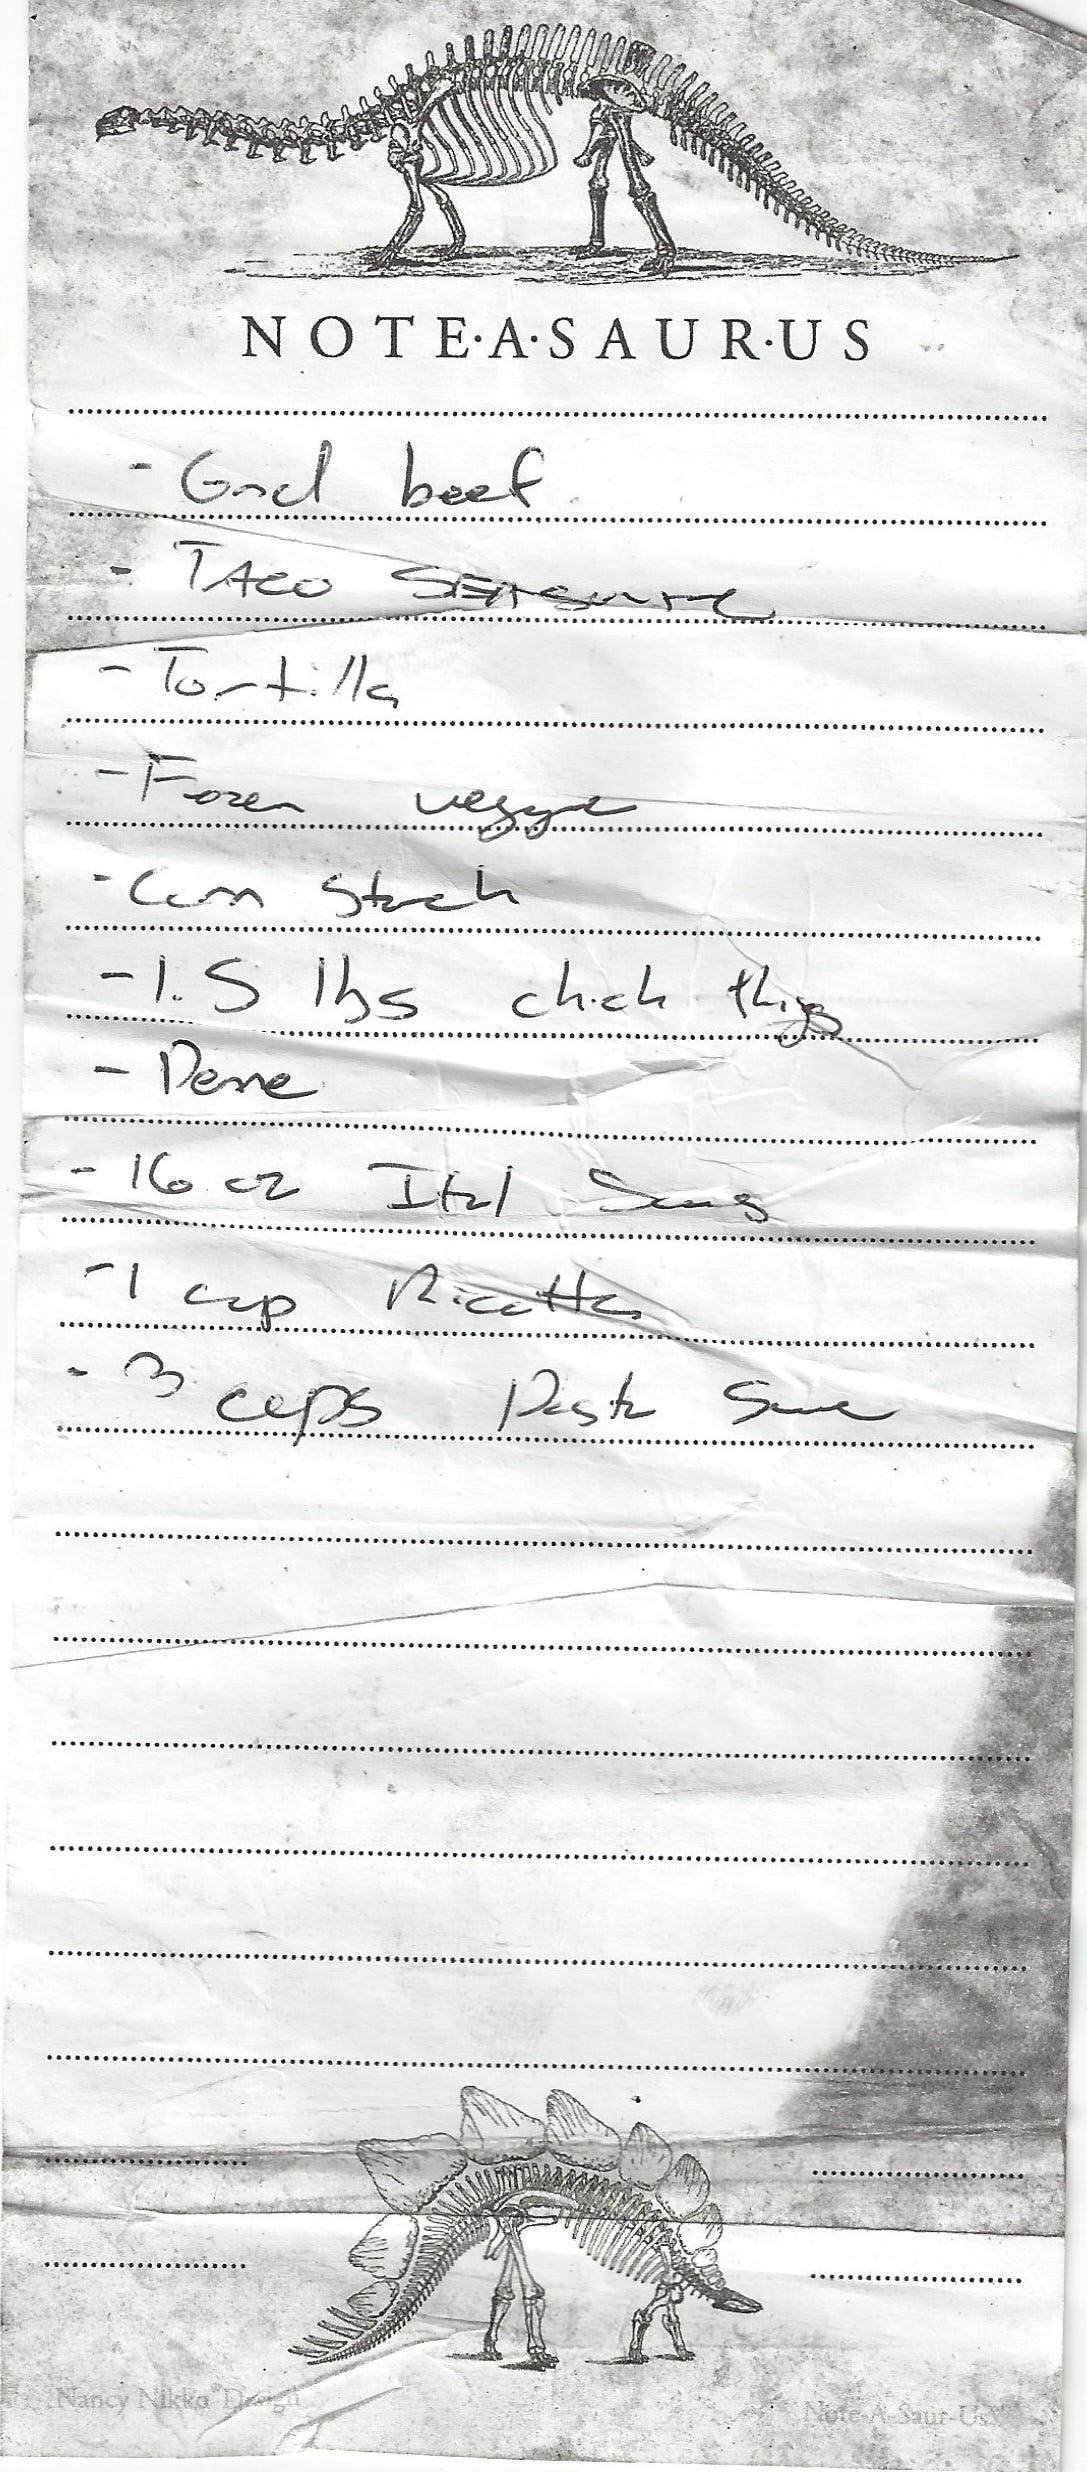 NOTE·A·SAUR·US
- Grnd beef
- TACO SEASoure
- Tortilla
- Frozen veggie
- Corn Starch
- 1.5 lbs chick thigs
- Penne
- 16 oz Ital Saus
- 1 cup Ricotta
- 3 cups Pasta Sauce
Nancy Nikko Design
Note-A-Saur-Us